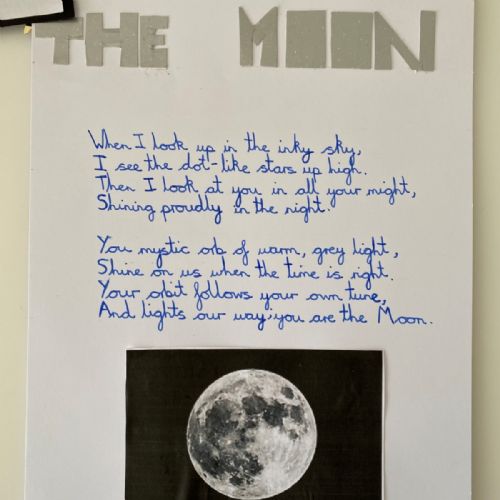 THE MOON
When I look up in the inky sky,
I see the dot-like stars up high.
Then I look at you in all your might,
Shining proudly in the night.
You mystic orb of warm, grey light,
Shine on us when the time is right.
Your orbit follows your own tune,
And lights our way; you are the Moon.